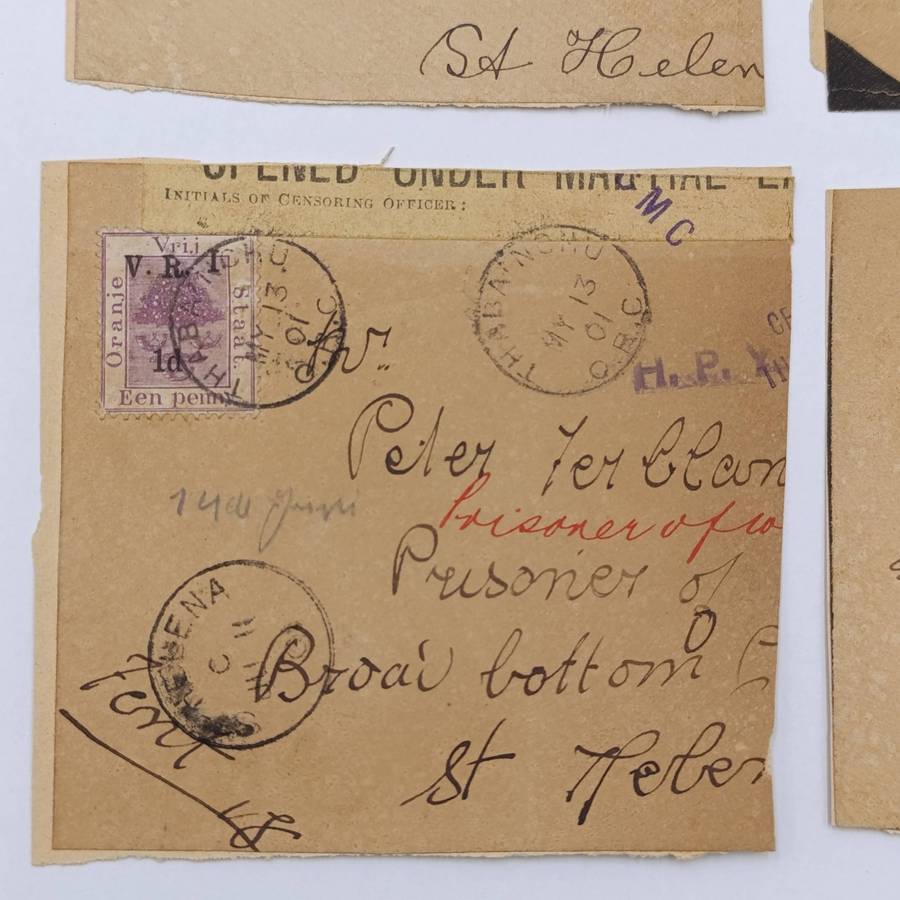 St Helen
OPENED UNDER MARTIAL
INITIALS OF CENSORING OFFICER:
M C
Vrij
V. R. I.
Oranje
Staat.
1d
Een penny
THABA'NCHU
MY 13
01
O.R.C
THABA'NCHU
MY 13
01
O.R.C
H. P.
Peter Terblan
Prisoner of w
Prisoner of
Broad bottom C
St Helen
HELENA
C
Tent